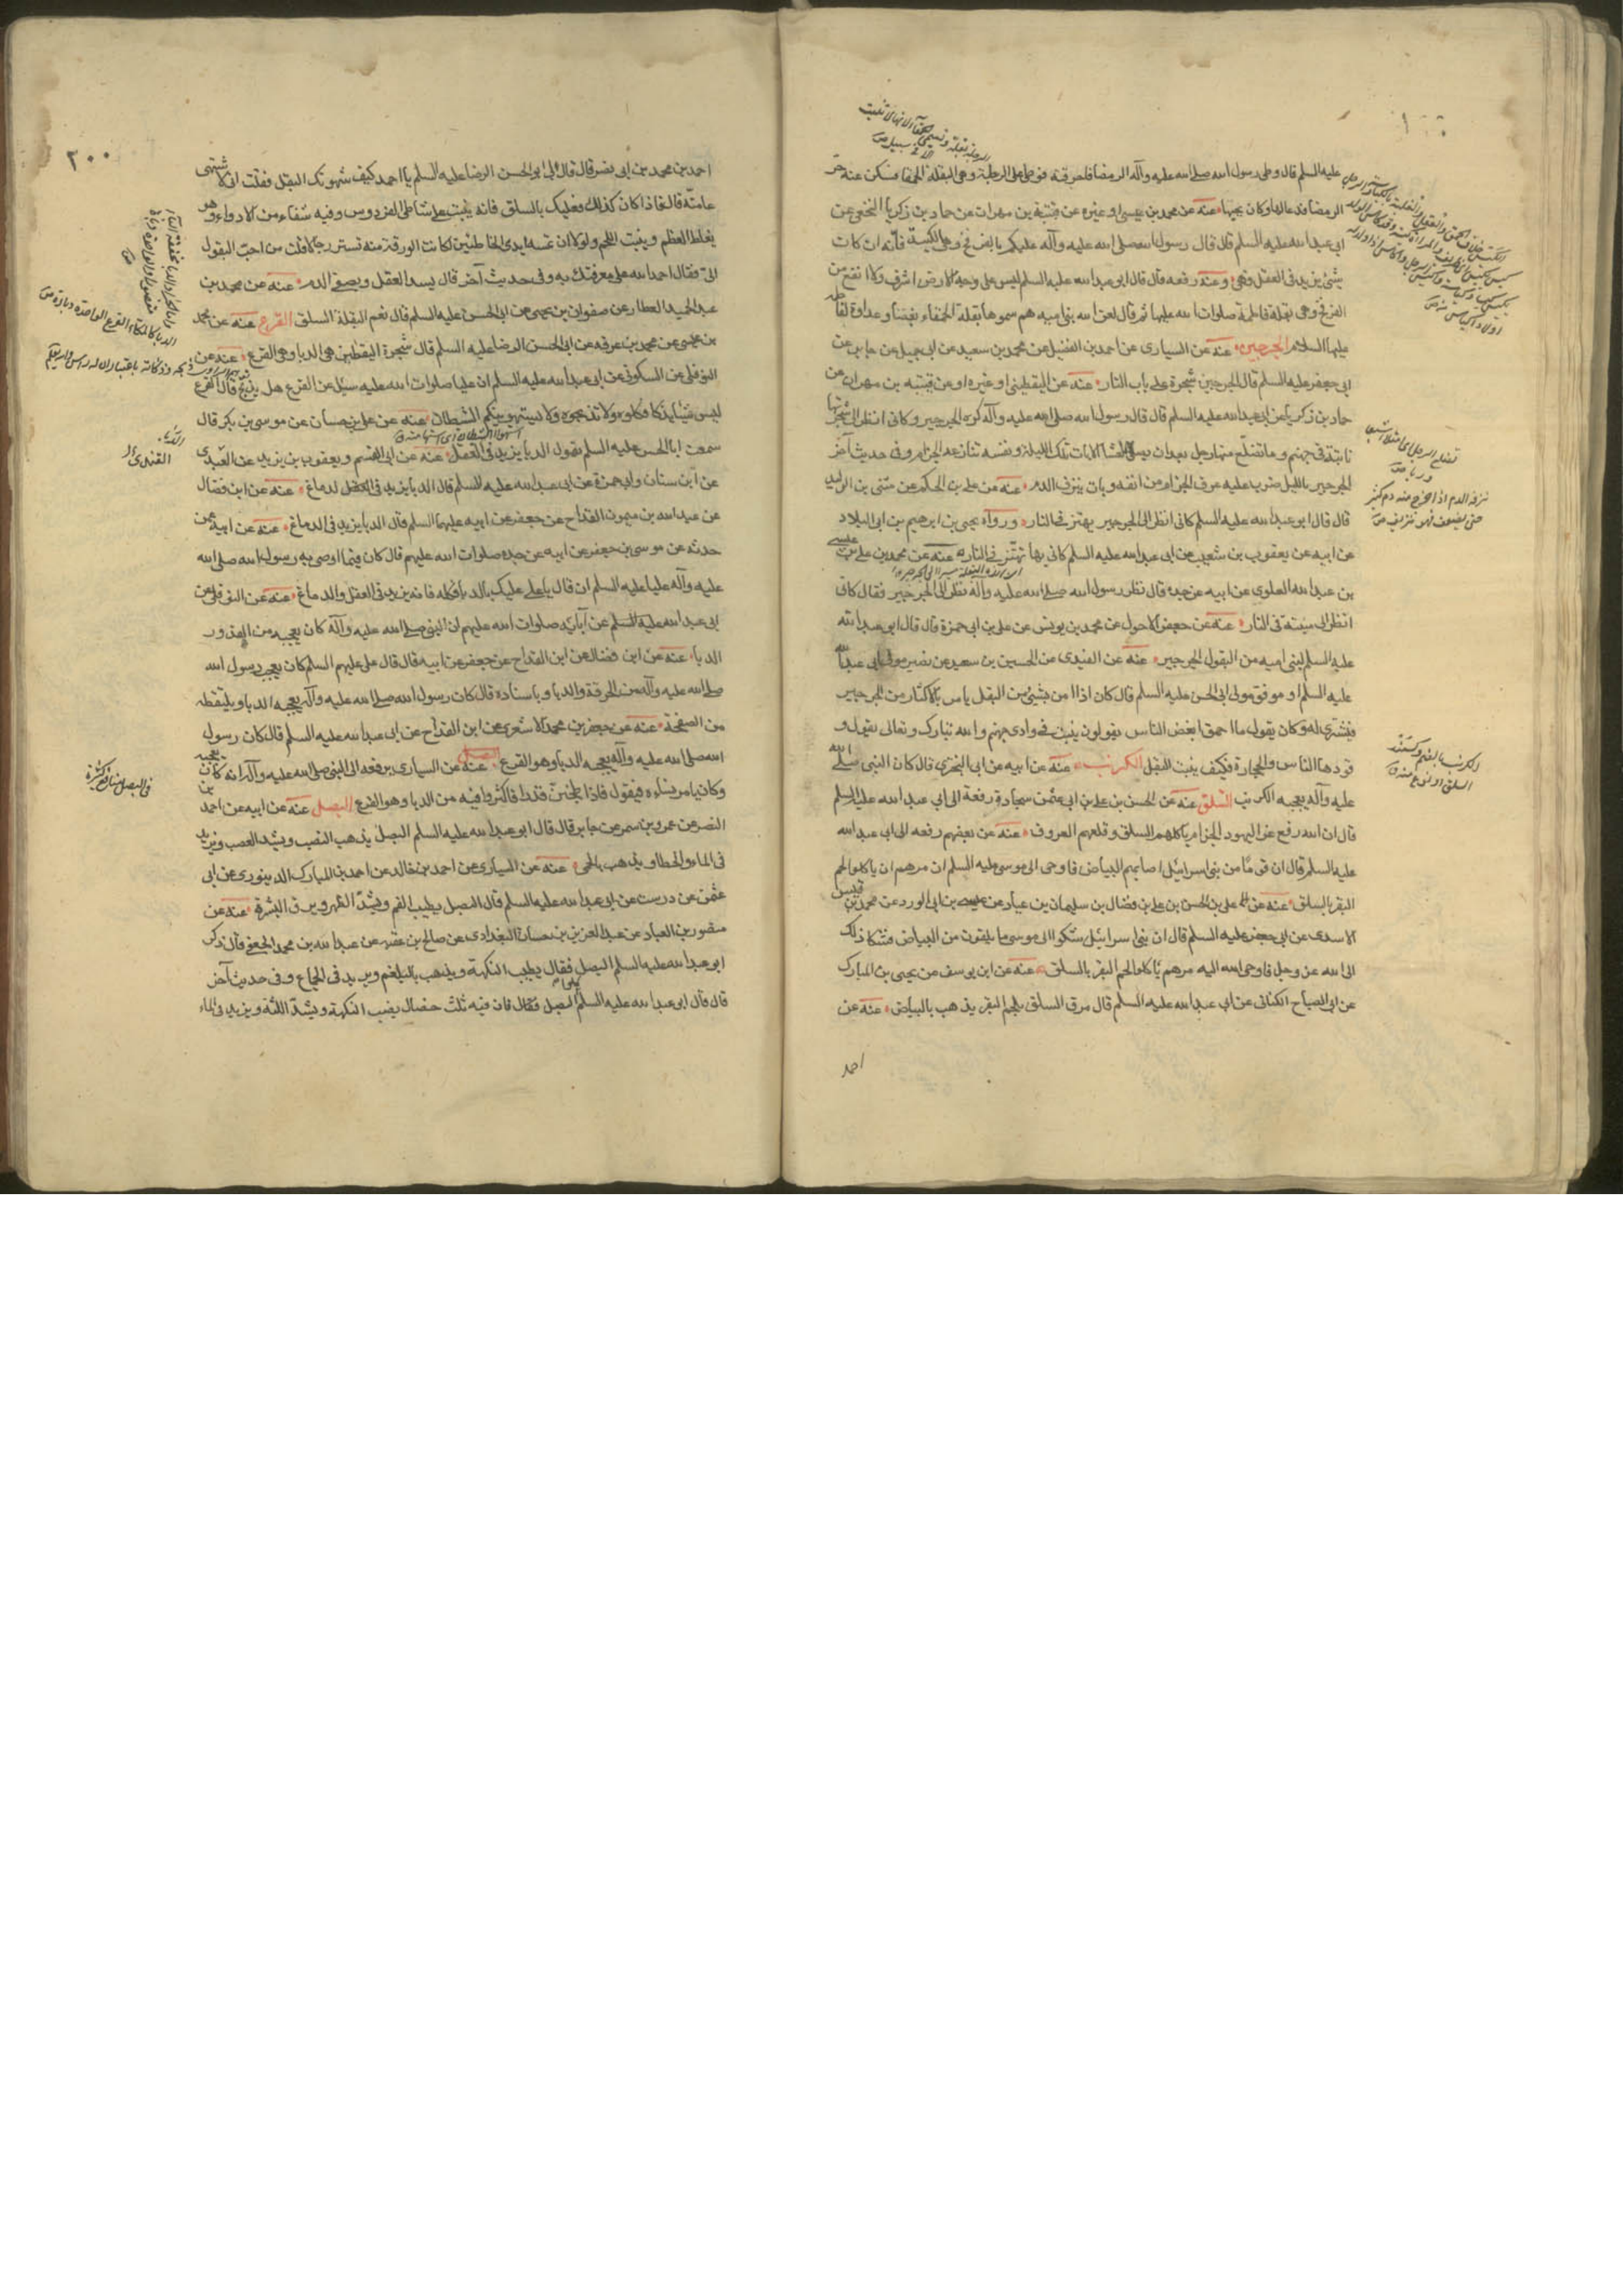 عليه السلم قال وطى رسول الله صلى الله عليه وآله الرمضا فاحرقته فوطى على الرجلة وهى البقلة الحمقا فسكن عنه حر
الرمضا فدعا لها وكان يحبها عنه عن محمد بن عيسى او غيره عن قتيبة بن مهران عن حماد بن زكريا النخعى عن
ابى عبد الله عليه السلم قال قال رسول الله صلى الله عليه وآله عليكم بالفرفخ وهى الكيسة فانه ان كان
شئ يزيد فى العقل فهى وعنه رفعه قال قال ابو عبد الله عليه السلم ليس على وجه الارض اشرف ولا انفع من
الفرفخ وهى بقلة فاطمة صلوات الله عليها ثم قال لعن الله بنى اميه هم سموها بقلة الحمقاء بغضا وعداوة لفاطمه
عليها السلام الجرجير عنه عن السيارى عن احمد بن الفضيل عن محمد بن سعيد عن ابى جميل عن جابر عن
ابى جعفر عليه السلم قال الجرجير شجرة على باب النار عنه عن اليقطينى او غيره او عن قتيبه بن مهران عن
حماد بن زكريا عن ابى عبد الله عليه السلم قال قال رسول الله صلى الله عليه وآله اكره الجرجير وكانى انظر الى شجرتها
نابتة فى جهنم وما تضلع منها رجل بعد ان يصلى العشا الا بات تلك الليلة ونفسه تنازعه الى الجزام وفى حديث آخر
الجرجير بالليل ضرب عليه عرق الجزام من انفه وبات ينزف الدم عنه عن على بن الحكم عن مثنى بن الوليد
قال قال ابو عبد الله عليه السلم كانى انظر الى الجرجير يهتز فى النار ورواه يحيى بن ابرهيم بن ابى البلاد
عن ابيه عن يعقوب بن شعيب عن ابى عبد الله عليه السلم كانى بها تهتز فى النار عنه عن محمد بن على بن عيسى
بن عبد الله العلوى عن ابيه عن جده قال نظر رسول الله صلى الله عليه وآله نظر الى الجرجير فقال كانى
انظر الى منبته فى النار عنه عن جعفر الاحول عن محمد بن يونس عن على بن ابى حمزة قال قال ابو عبد الله
عليه السلم لبنى اميه من البقول الجرجير عنه عن العبدى عن الحسين بن سعيد عن نصير مولى ابى عبد الله
عليه السلم او موفق مولى ابى الحسن عليه السلم قال كان اذا امر بشئ من البقل يامر بالاكثار من الجرجير
فيشترى له وكان يقول ما احمق بعض الناس يقولون ينبت فى وادى جهنم والله تبارك وتعالى يقول و
قودها الناس والحجارة فكيف ينبت البقل الكرنب عنه عن ابيه عن ابى البخترى قال كان النبى صلى الله
عليه وآله يعجبه الكرنب السلق عنه عن الحسن بن على بن ابى عثمن سجادة رفعة الى ابى عبد الله عليه السلم
قال ان الله رفع عن اليهود الجزام باكلهم السلق وقلعهم العروق عنه عن بعضهم رفعه الى ابى عبد الله
عليه السلم قال ان قوما من بنى اسرائيل اصابهم البياض فاوحى الى موسى عليه السلم ان مرهم ان ياكلوا لحم
البقر بالسلق عنه عن على بن الحسن بن على بن فضال بن سليمان بن عباد عن عيسى بن ابى الورد عن محمد بن قيس
الاسدى عن ابى جعفر عليه السلم قال ان بنى اسرائيل شكوا الى موسى ما يلقون من البياض فشكا ذلك
الى الله عز وجل فاوحى الله اليه مرهم ياكلوا لحم البقر بالسلق عنه عن ابن يوسف عن يحيى بن المبارك
عن ابى الصباح الكنانى عن ابى عبد الله عليه السلم قال مرق السلق بلحم البقر يذهب بالبياض عنه عن
احمد
الكرنب بالضم وكسمند
السلق او نوع منه ق
نزفه الدم اذا خرج منه دم كثير
حتى يضعف فهو نزيف ص
٢٠٠
احمد بن محمد بن ابى نصر قال قال لى ابو الحسن الرضا عليه السلم يا احمد كيف شهوتك البقل فقلت انى لاشتهى
عامته قال فاذا كان كذلك فعليك بالسلق فانه ينبت على شاطئ الفردوس وفيه شفاء من الادواء وهو
يغلظ العظم وينبت اللحم ولولا ان تمسه ايدى الخاطئين لكانت الورقة منه تستر رجالا قلت من احب البقول
الى فقال احمد الله على معرفتك به وفى حديث آخر قال يسد العقل ويصفى الدم عنه عن محمد بن
عبد الحميد العطار عن صفوان بن يحيى عن ابى الحسن عليه السلم قال نعم البقلة السلق القرع عنه عن محمد
بن عيسى عن محمد بن عرفه عن ابى الحسن الرضا عليه السلم قال شجرة اليقطين هى الدبا وهى القرع عنه عن
النوفلى عن السكونى عن ابى عبد الله عليه السلم ان عليا صلوات الله عليه سئل عن القرع هل يذبح قال القرع
ليس شيئا يذكا فكلوه ولا تذبحوه ولا يستهوينكم الشيطان عنه عن على بن حسان عن موسى بن بكر قال
سمعت ابا الحسن عليه السلم يقول الدبا يزيد فى العقل عنه عن ابى القسم ويعقوب بن يزيد عن العبدى
عن ابن سنان وابى حمزة عن ابى عبد الله عليه السلم قال الدبا يزيد فى العقل لدماغ عنه عن ابن فضال
عن عبد الله بن ميمون القداح عن جعفر عن ابيه عليهما السلم قال الدبا يزيد فى الدماغ عنه عن ابيه عمن
حدثه عن موسى بن جعفر عن ابيه عن جده صلوات الله عليهم قال كان فيما اوصى به رسول الله صلى الله
عليه وآله عليا عليه السلم ان قال يا على عليك بالدبا فكله فانه يزيد فى العقل والدماغ عنه عن النوفلى عن
ابى عبد الله عليه السلم عن آبائه صلوات الله عليهم ان النبى صلى الله عليه وآله كان يعجبه من القدور
الدبا عنه عن ابن فضال عن ابن القداح عن جعفر عن ابيه قال قال على عليهم السلم كان يعجب رسول الله
صلى الله عليه وآله من المرقة والدبا وباسناده قال كان رسول الله صلى الله عليه وآله يعجبه الدبا ويلتقطه
من الصفحة عنه عن جعفر بن محمد الاشعرى عن ابن القداح عن ابى عبد الله عليه السلم قال كان رسول
الله صلى الله عليه وآله يعجبه الدبا وهو القرع عنه عن السيارى يرفعه الى النبى صلى الله عليه وآله انه كان يعجبه
وكان يامر نساءه فيقول فاذا طبختن قدرا فاكثروا فيه من الدبا وهو القرع البصل عنه عن ابيه عن احمد بن
النضر عن عمرو بن شمر عن جابر قال قال ابو عبد الله عليه السلم البصل يذهب النصب ويشد العصب ويزيد
فى الماء والخطا ويذهب بالحمى عنه عن السيارى عن احمد بن خالد عن احمد بن المبارك الدينورى عن ابى
عثمن عن درست عن ابى عبد الله عليه السلم قال البصل يطيب الفم ويشد الظهر ويرق البشرة عنه عن
منصور بن العباد عن عبد العزيز بن حسان البغدادى عن صالح بن عقبه عن عبد الله بن محمد الجعفى قال ذكر
ابو عبد الله عليه السلم البصل فقال يطيب النكهة ويذهب بالبلغم ويزيد فى الجماع وفى حديث آخر
قال قال ابى عبد الله عليه السلم البصل فقال فان فيه ثلث خصال يطيب النكهة ويشد اللثة ويزيد فى الماء
فى البصل منافع كثيرة